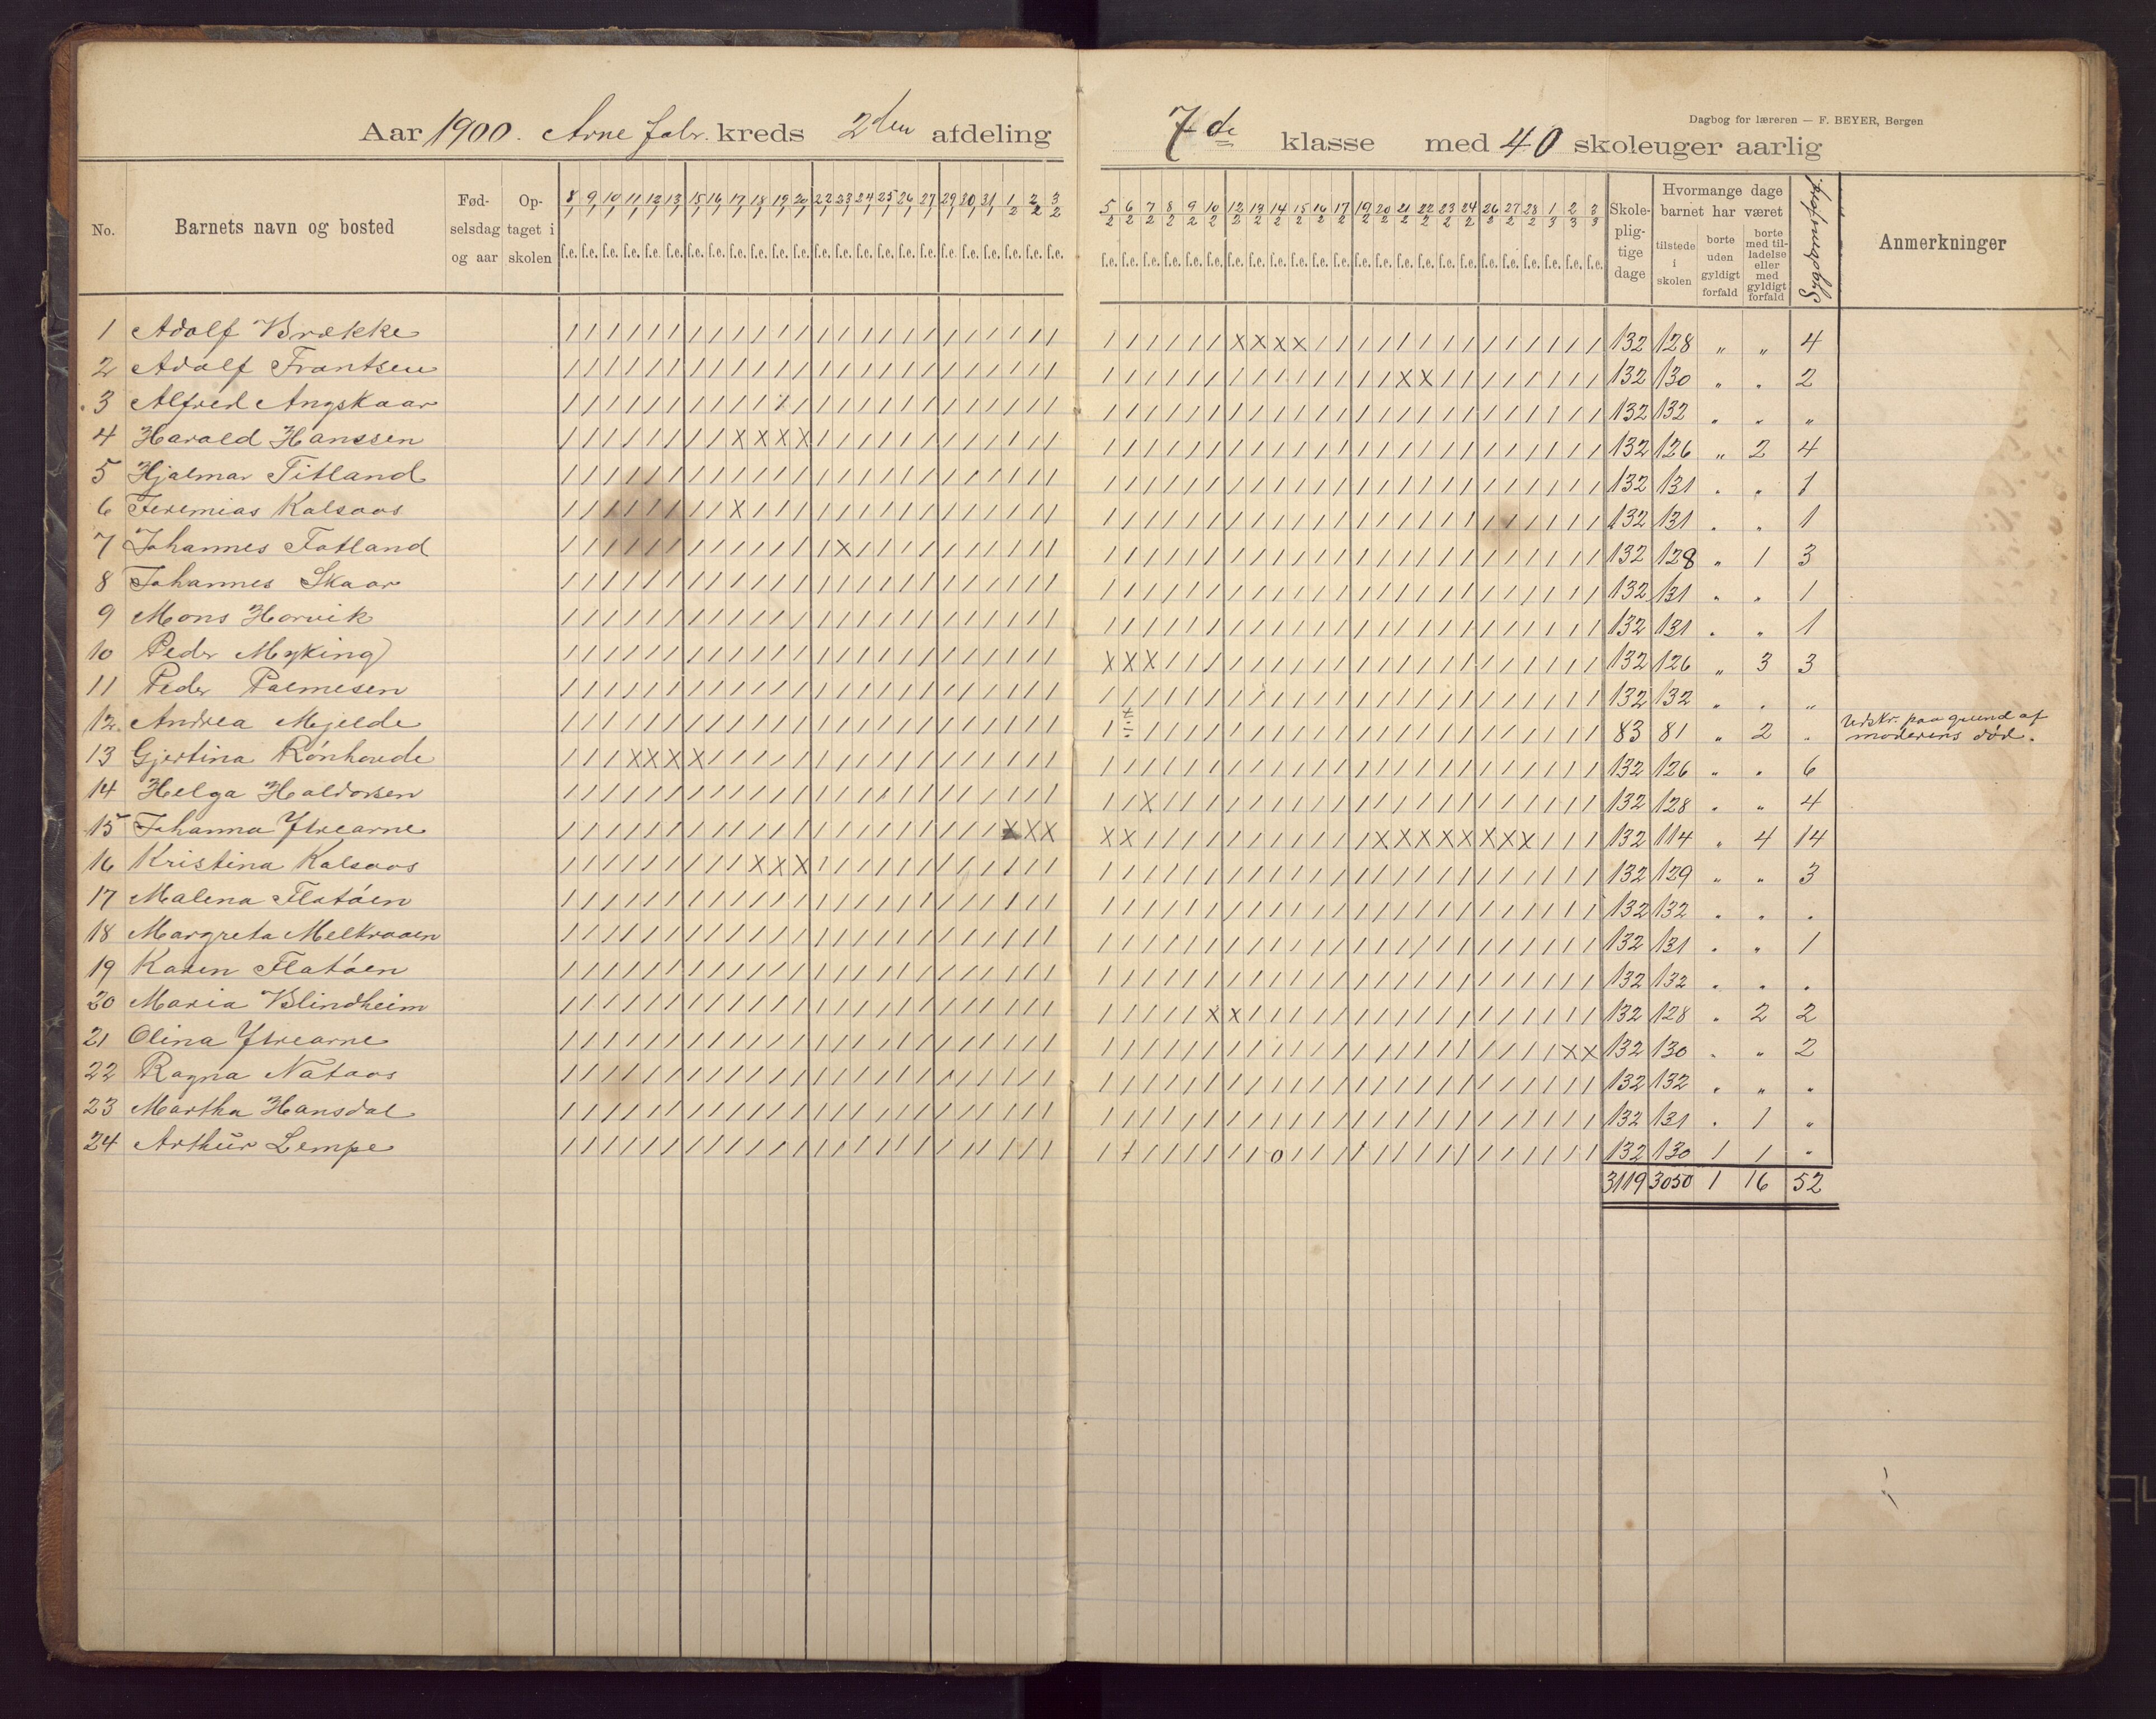 Dagbog for læreren — F. BEYER, Bergen
Aar 1900. Arne fabr. kreds 2den afdeling 7de klasse med 40 skoleuger aarlig
No. Barnets navn og bosted Fød-selsdag og aar Op-taget i skolen
8/1 9/1 10/1 11/1 12/1 13/1 15/1 16/1 17/1 18/1 19/1 20/1 22/1 23/1 24/1 25/1 26/1 27/1 29/1 30/1 31/1 1/2 2/2 3/2
5/2 6/2 7/2 8/2 9/2 10/2 12/2 13/2 14/2 15/2 16/2 17/2 19/2 20/2 21/2 22/2 23/2 24/2 26/2 27/2 28/2 1/3 2/3 3/3
Skole-plig-tige dage
Hvormange dage barnet har været
tilstede i skolen
borte uden gyldigt forfald
borte med til-ladelse eller med gyldigt forfald
Sygdomsforf.
Anmerkninger
1 Adolf Brække 132 128 " " 4
2 Adolf Frantsen 132 130 " " 2
3 Alfred Angskaar 132 132 " " "
4 Harald Hanssen 132 126 " 2 4
5 Hjalmar Titland 132 131 " " 1
6 Jeremias Kalsaas 132 131 " " 1
7 Johannes Totland 132 128 " 1 3
8 Johannes Skaar 132 131 " " 1
9 Mons Horvik 132 131 " " 1
10 Peder Myking 132 126 " 3 3
11 Peder Palmesen 132 132 " " "
12. Andrea Mjelde 83 81 " 2 " Udskr. paa grund af
moderens død.
13 Gjertina Rønhovde 132 126 " " 6
14 Helga Haldorsen 132 128 " " 4
15 Johanna Ytrearne 132 114 " 4 14
16 Kristina Kalsaas 132 129 " " 3
17 Malena Flatøen 132 132 " " "
18 Margreta Melkraaen 132 131 " " 1
19 Karen Flatøen 132 132 " " "
20 Maria Blindheim 132 128 " 2 2
21 Olina Ytrearne 132 130 " " 2
22 Ragna Nataas 132 132 " " "
23 Martha Hansdal 132 131 " 1 "
24 Arthur Lempe 132 130 1 1 "
3119 3050 1 16 52